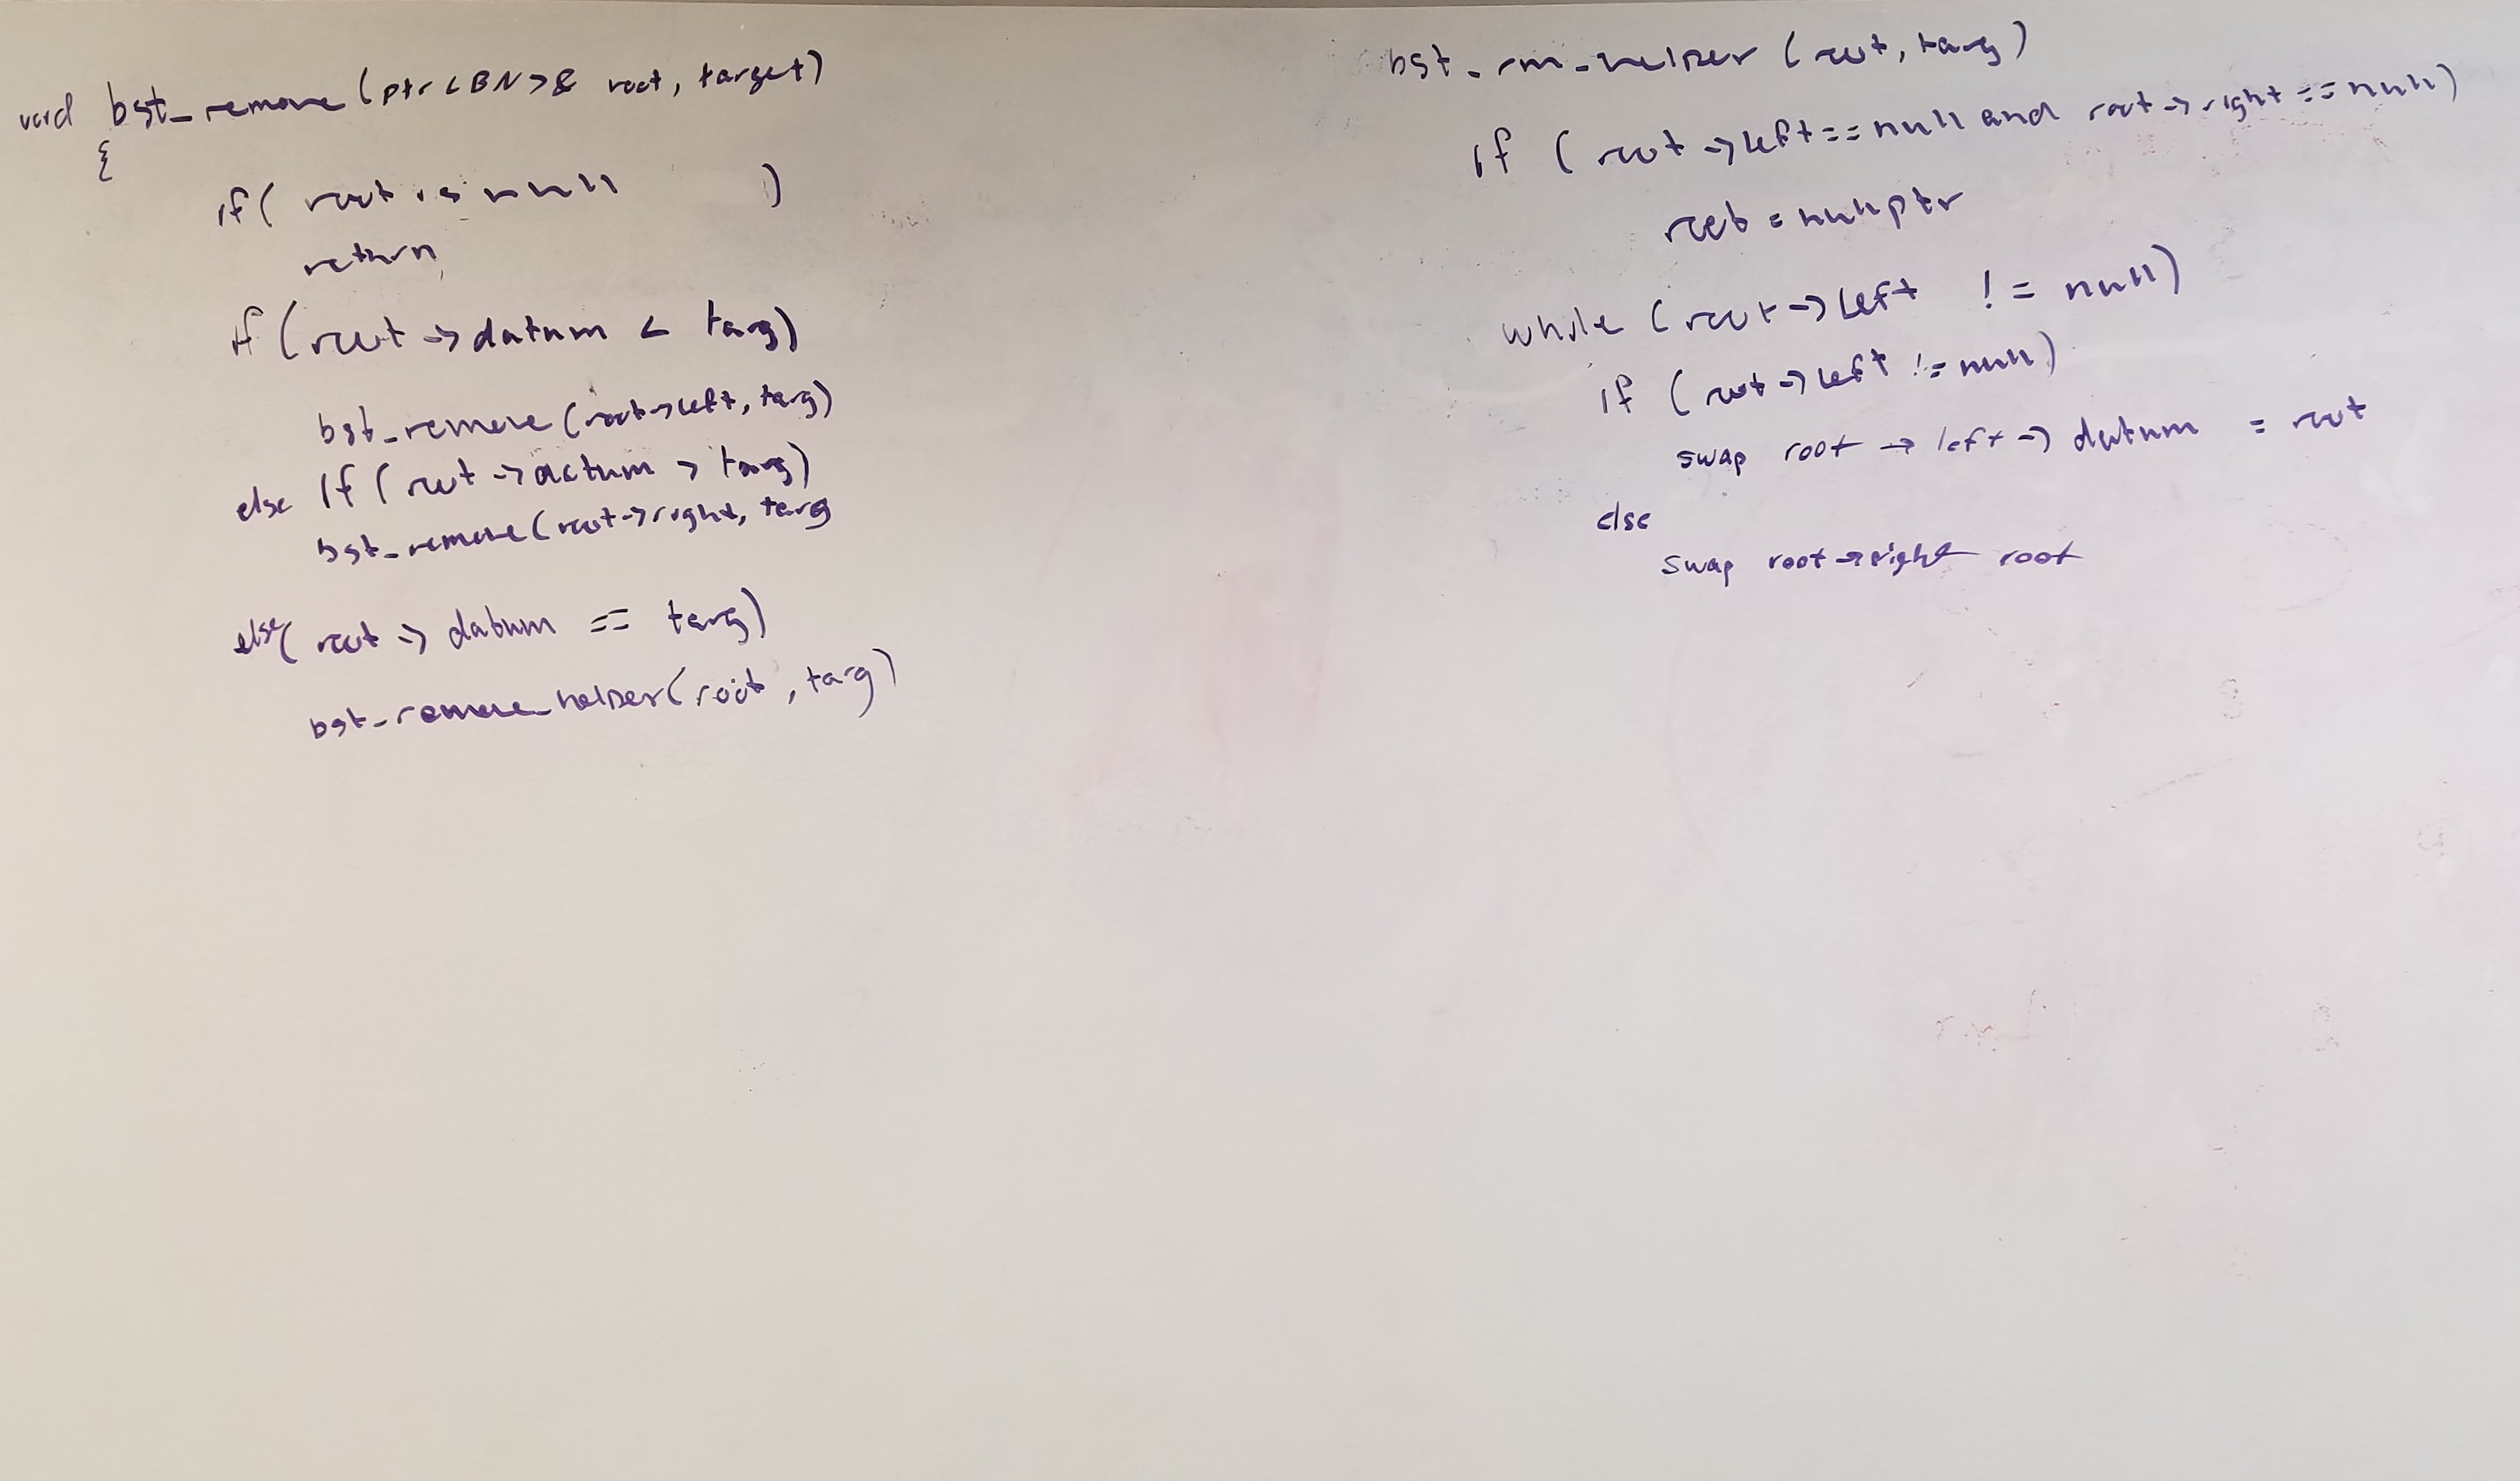 void bst_remove (ptr<BN>& root, target)
{
if( root is null )
return
if (root -> datum < targ)
bst_remove (root->left, targ)
else if ( root -> datum > targ)
bst_remove (root->right, targ
else( root -> datum == targ)
bst_remove_helper( root , targ)
bst_rm_helper (root, targ)
if ( root ->left==null and root -> right ==null)
root = nullptr
while (root->left != null)
if ( root ->left != null)
swap root -> left -> datum = root
else
swap root ->right root